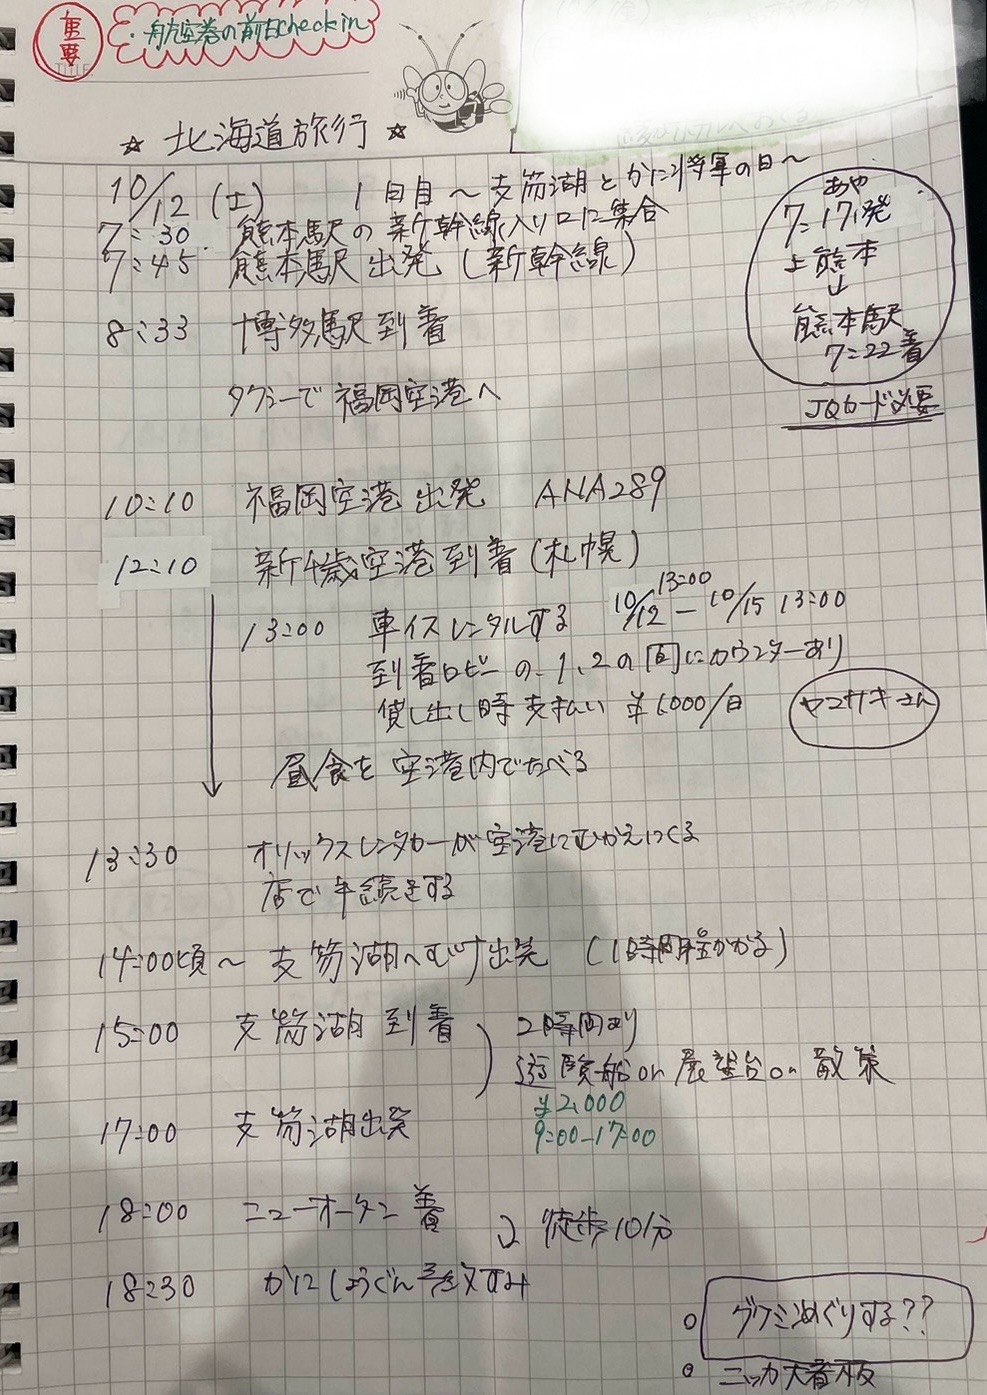 重要
TITLE
・航空券の前日checkin
☆ 北海道旅行 ☆
10/12 (土) 1日目 ～支笏湖とかに将軍の日～
7:30 熊本駅の新幹線入り口に集合
7:45 熊本駅出発 (新幹線)
あや
7:17発
上熊本
↓
熊本駅
7:22着
JQカード必要
8:33 博多駅到着
タクシーで福岡空港へ
10:10 福岡空港出発 ANA289
12:10 新千歳空港到着 (札幌)
13:00 車イスレンタルする 10/12 13:00 – 10/15 13:00
到着ロビーの1、2の間にカウンターあり
貸し出し時支払い ¥1,000/日
ヤマサキさん
昼食を空港内でたべる
13:30 オリックスレンタカーが空港にむかえにくる
店で手続きする
14:00頃～ 支笏湖へむけ出発 (1時間程かかる)
15:00 支笏湖到着
2時間あり
遊覧船or展望台or散策
¥2,000
9:00–17:00
17:00 支笏湖出発
18:00 ニューオータニ着
徒歩10分
18:30 かにしょうぐん予約すみ
○ グラミンめぐりする??
○ ニッカ大看板